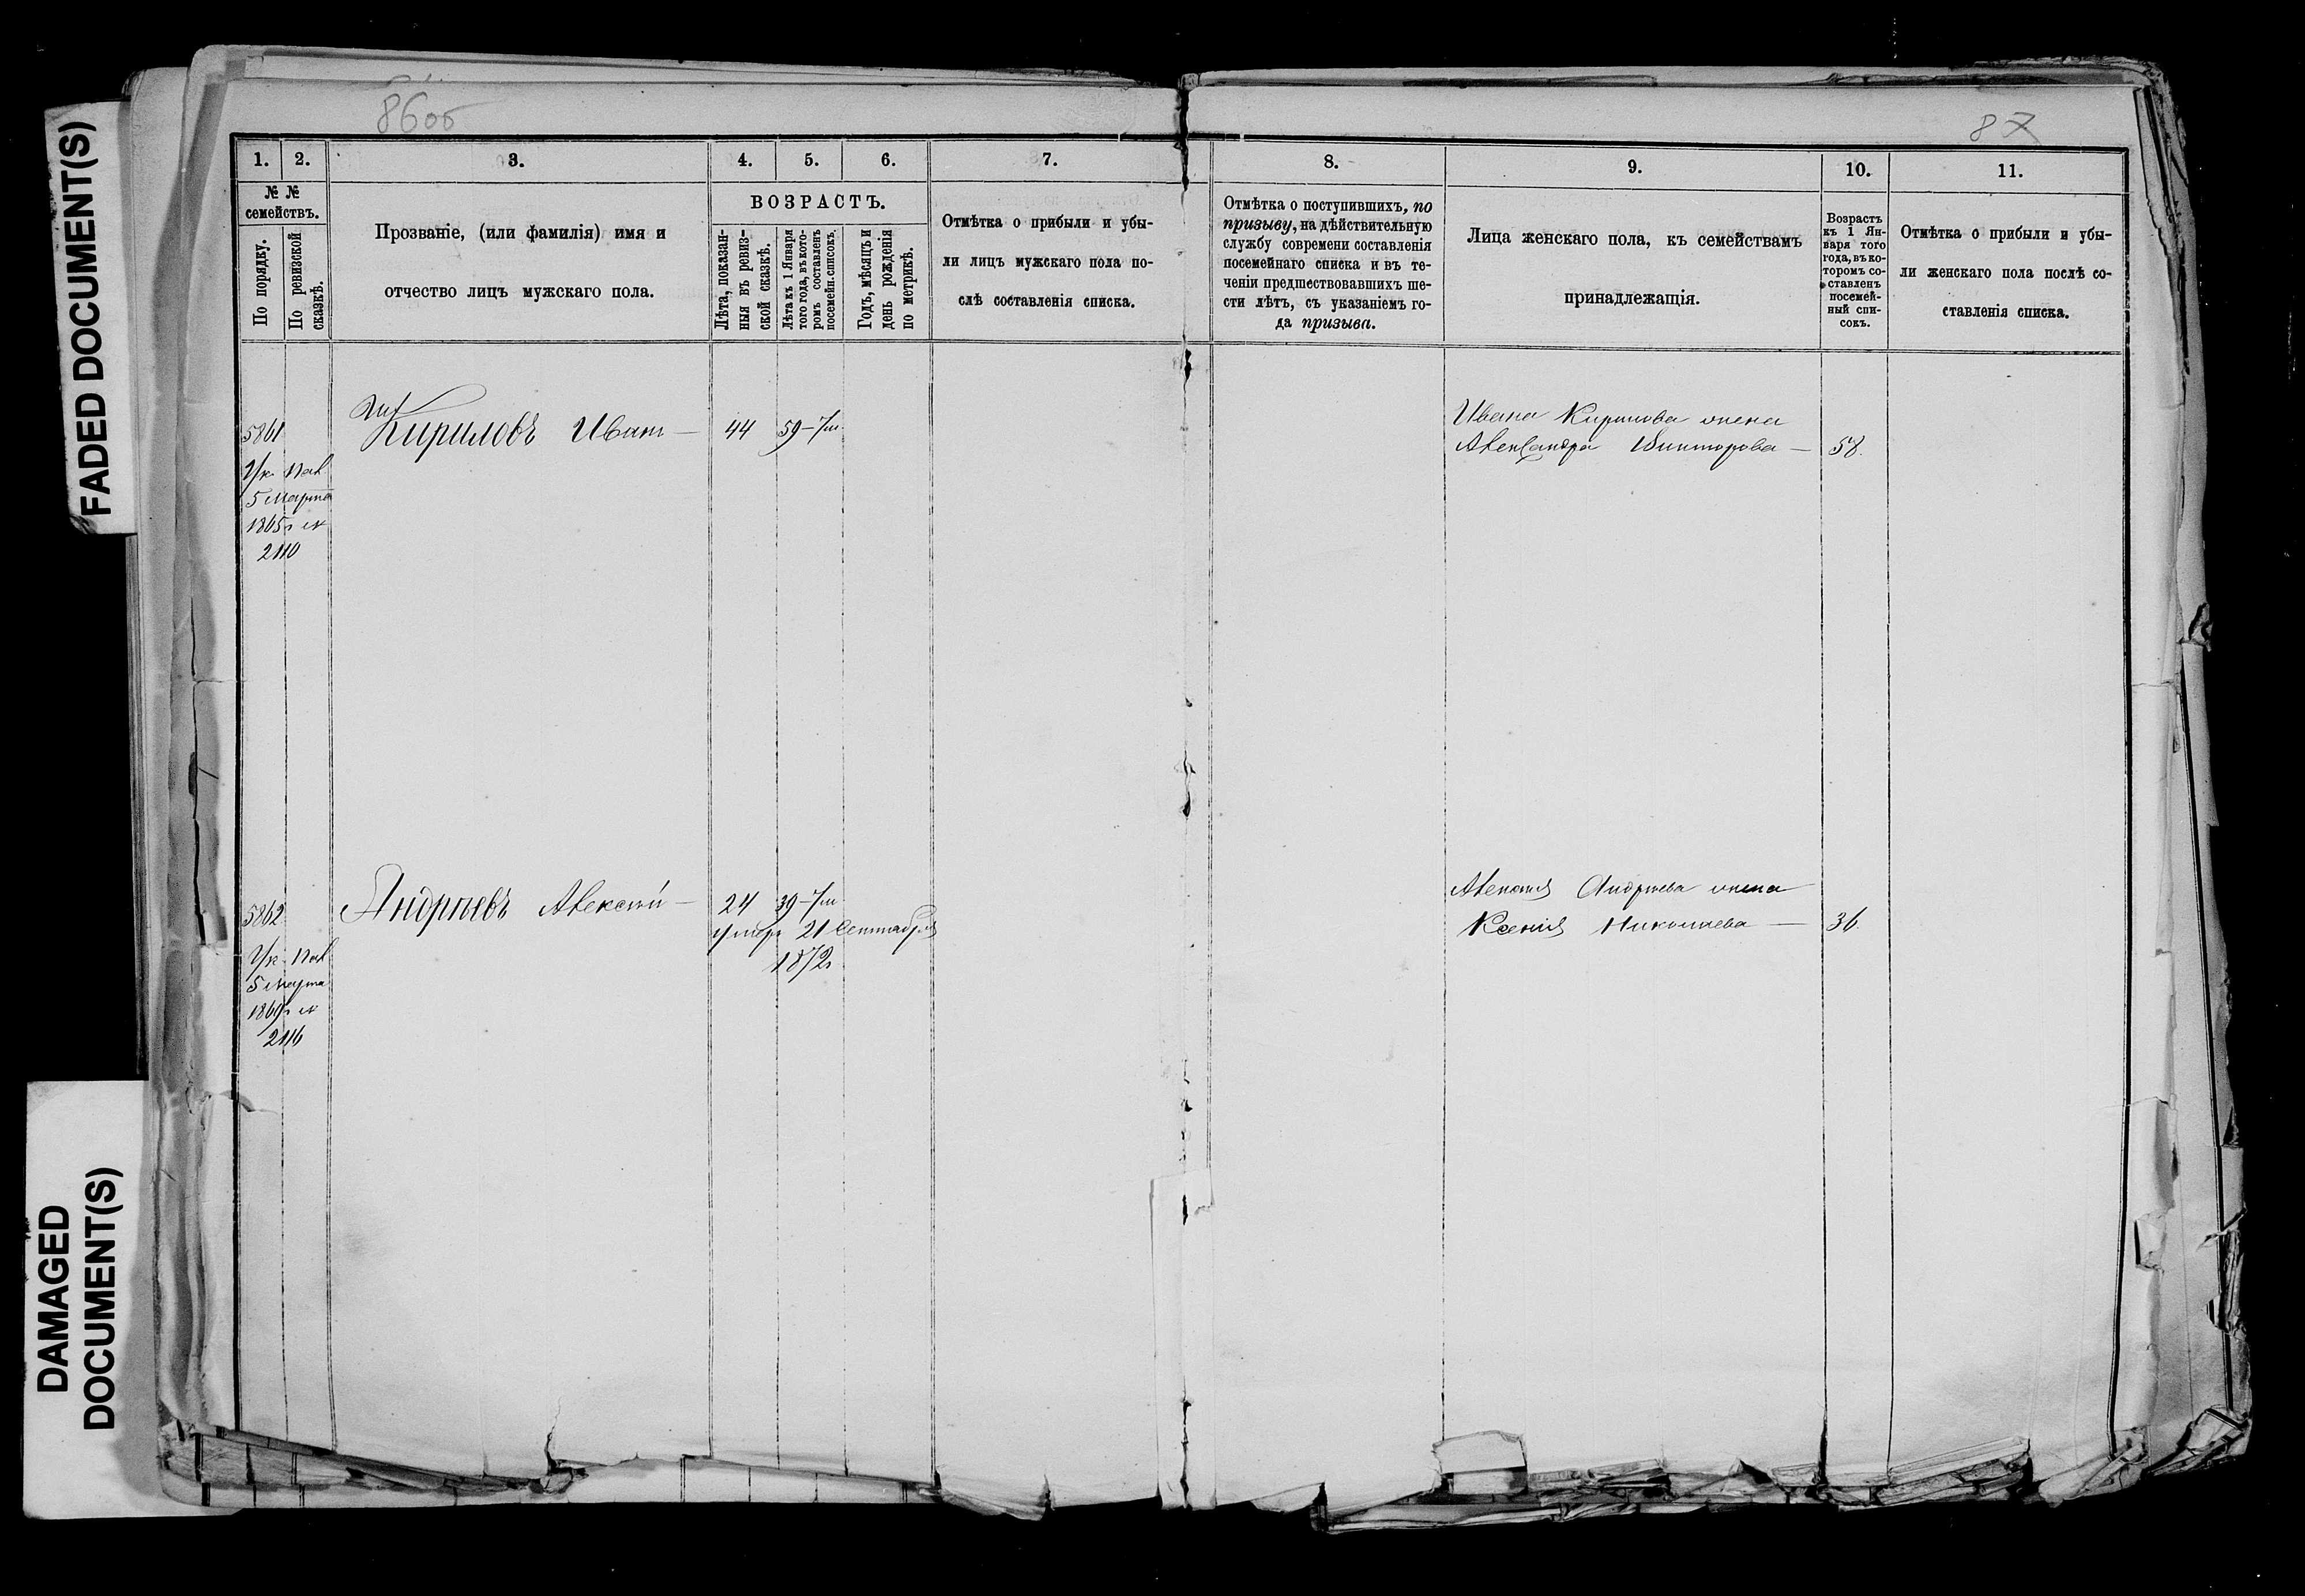 FADED DOCUMENT(S)
DAMAGED
DOCUMENT(S)
86об
87
1.
2.
3.
4.
5.
6.
7.
8.
9.
10.
11.
№ №
семействъ.
По порядку.
По ревизской
сказкѣ.
Прозваніе, (или фамилія) имя и
отчество лицъ мужскаго пола.
ВОЗРАСТЪ.
Лѣта, показан-
ныя въ ревиз-
ской сказкѣ.
Лѣта къ 1 Января
того года, въ кото-
ромъ составленъ
посемейн. списокъ.
Годъ, мѣсяцъ и
день рожденія
по метрикѣ.
Отмѣтка о прибыли и убы-
ли лицъ мужскаго пола по-
слѣ составленія списка.
Отмѣтка о поступившихъ, по
призыву, на дѣйствительную
службу современи составленія
посемейнаго списка и въ те-
ченіи предшествовавшихъ ше-
сти лѣтъ, съ указаніемъ го-
да призыва.
Лица женскаго пола, къ семействамъ
принадлежащія.
Возрастъ
къ 1 Ян-
варя того
года, въ ко-
торомъ со-
ставленъ
посемей-
ный спи-
сокъ.
Отмѣтка о прибыли и убы-
ли женскаго пола послѣ со-
ставленія списка.
5861
Кириловъ Иванъ — 44 59-7м
Ук. Пал
5 Марта
1865г №
2110
Ивана Кирилова жена
Александра Викторова — 58.
5862
Андреевъ Алексѣй — 24 39-7м
умеръ 21 Сентября
1872г
Ук. Пал
5 Марта
2116
Алексѣя Андреева жена
Ксенія Николаева — 36